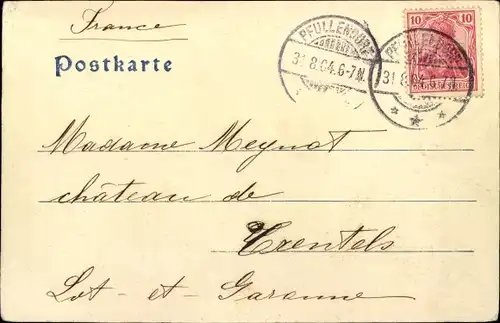 France
Postkarte
PFULLENDORF
31.8.04.6-7N.
PFULLENDORF
31.8.04.6-7N.
10 10
Madame Meynot
château de
Trentels
Lot - et - Garonne